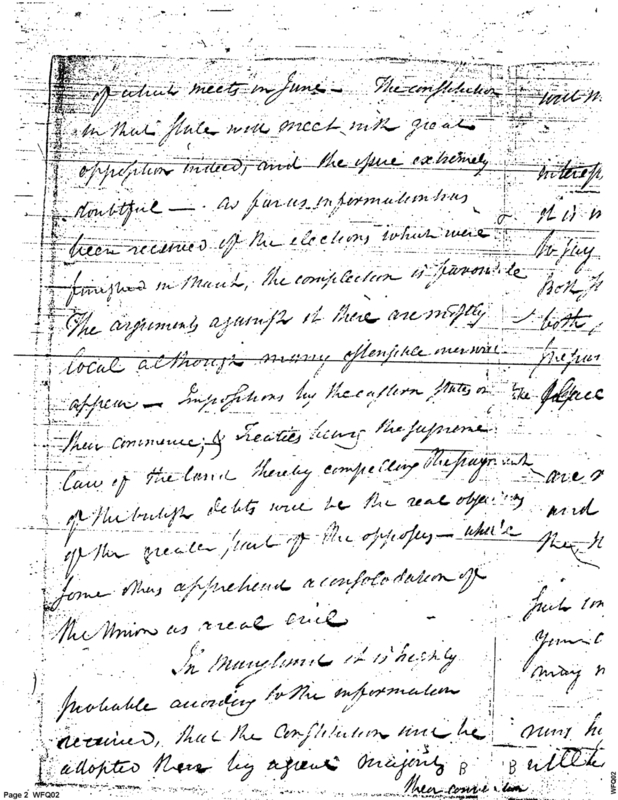 of which meets in June — The constitution
in that State will meet with great
opposition indeed, and the issue extremely
doubtful — . As far as information has
been received of the elections which were
finished in March, the complection is favorable
The arguments against it there are mostly
local although many ostensible ones will
appear — Impositions by the eastern States on
their commerce, & Treaties being the supreme
law of the land thereby compelling the payment
of the british debts will be the real objections
of the greater part of the opposers — while
some others apprehend a consolodation of
the Union as a real evil
In Maryland it is highly
probable according to the information
received, that the Constitution will be
adopted there by a great majority
Their convention
will
interest
it is
to say
Both
both
prepar
the
are
and
the
such
may
B B
Page 2 WFQ02
WFQ02